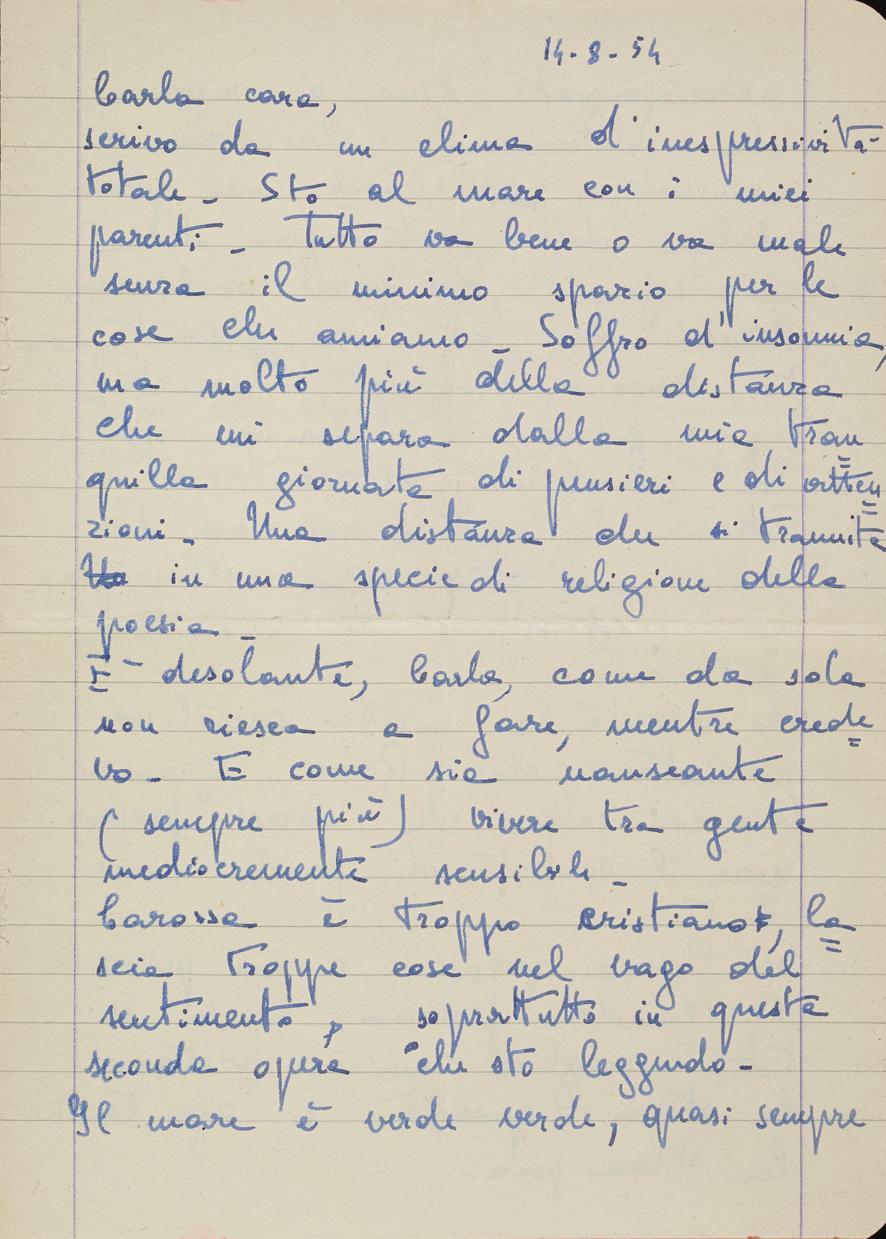 14-8-54
Carla cara,
scrivo da un clima d'inespressività
totale - Sto al mare con i miei
parenti - Tutto va bene o va male
senza il minimo spazio per le
cose che amiamo - Soffro d'insonnia,
ma molto più della distanza
che mi separa dalla mia tran
quilla giornata di pensieri e di atten
zioni - Una distanza che si tramuta
in una specie di religione della
poesia -
È desolante, Carla, come da sola
non riesca a fare, mentre crede
vo - E come sia nauseante
(sempre più) vivere tra gente
mediocremente sensibile -
Carossa è troppo cristiano, la
scia troppe cose nel vago del
sentimento, soprattutto in questa
seconda opera che sto leggendo -
Il mare è verde verde, quasi sempre